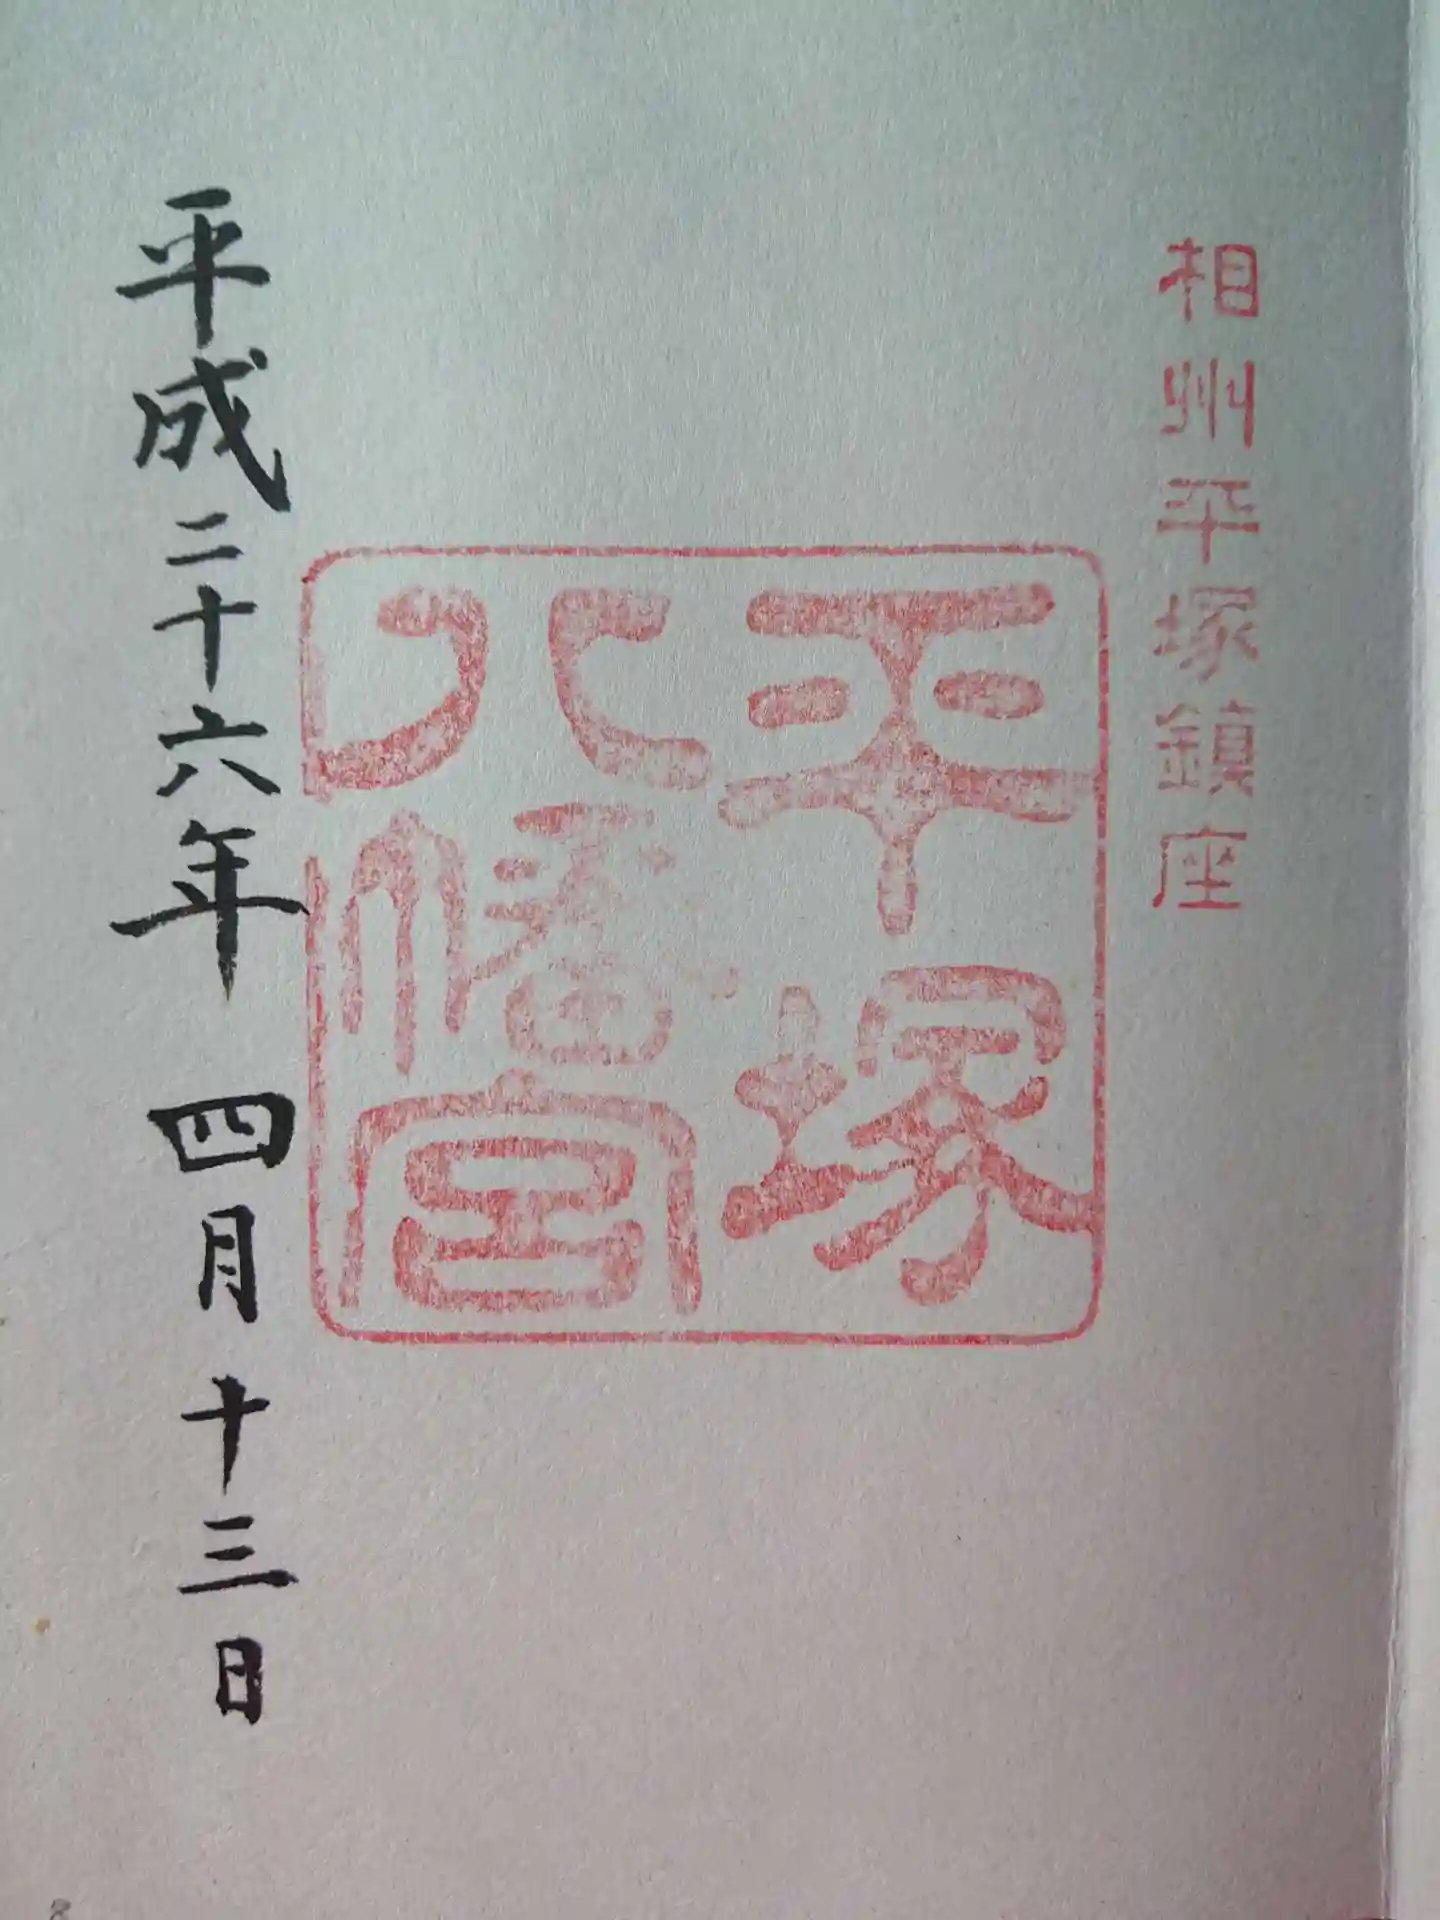 相州平塚鎮座
平塚
八幡宮
平成二十六年 四月十三日
8